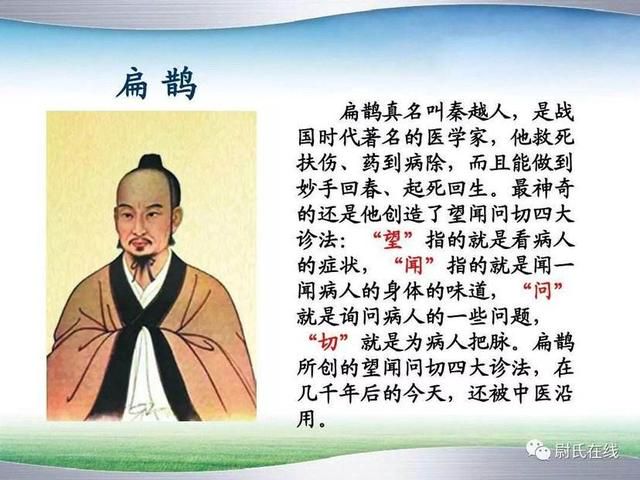 扁鹊
扁鹊真名叫秦越人，是战
国时代著名的医学家，他救死
扶伤、药到病除，而且能做到
妙手回春、起死回生。最神奇
的还是他创造了望闻问切四大
诊法：“望”指的就是看病人
的症状，“闻”指的就是闻一
闻病人的身体的味道，“问”
就是询问病人的一些问题，
“切”就是为病人把脉。扁鹊
所创的望闻问切四大诊法，在
几千年后的今天，还被中医沿
用。
尉氏在线